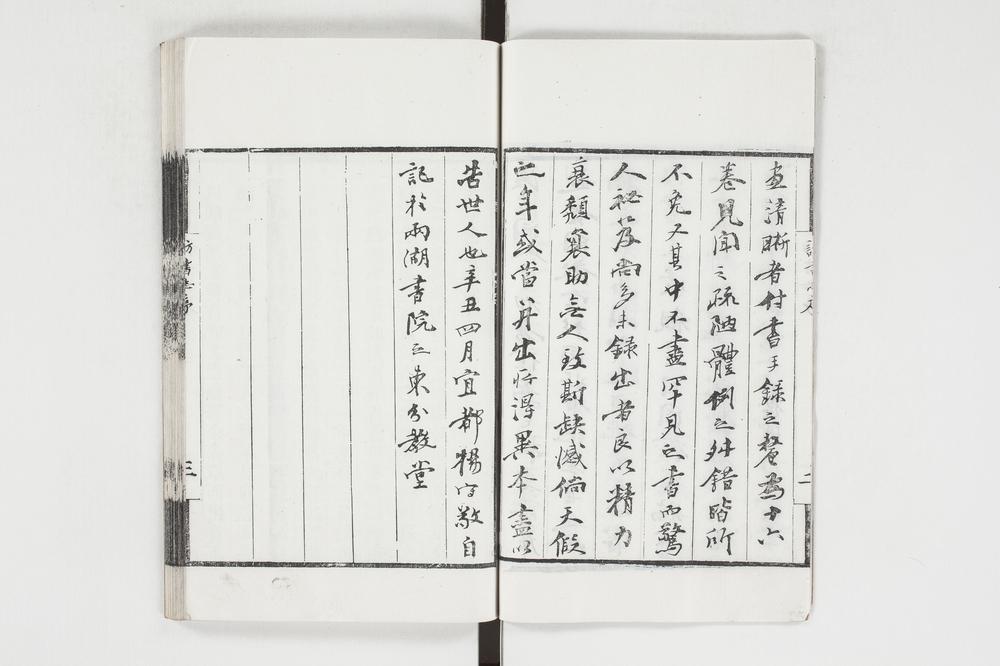 畫清晰者付書手錄之釐為十六
卷見聞之疏陋體例之舛錯皆所
不免又其中不盡罕見之書而驚
人祕笈尚多未錄出者良以精力
衰頹襄助無人致斯缺憾倘天假
之年或當并出所得異本盡以
告世人也辛丑四月宜都楊守敬自
記於兩湖書院之東分教堂
二
三